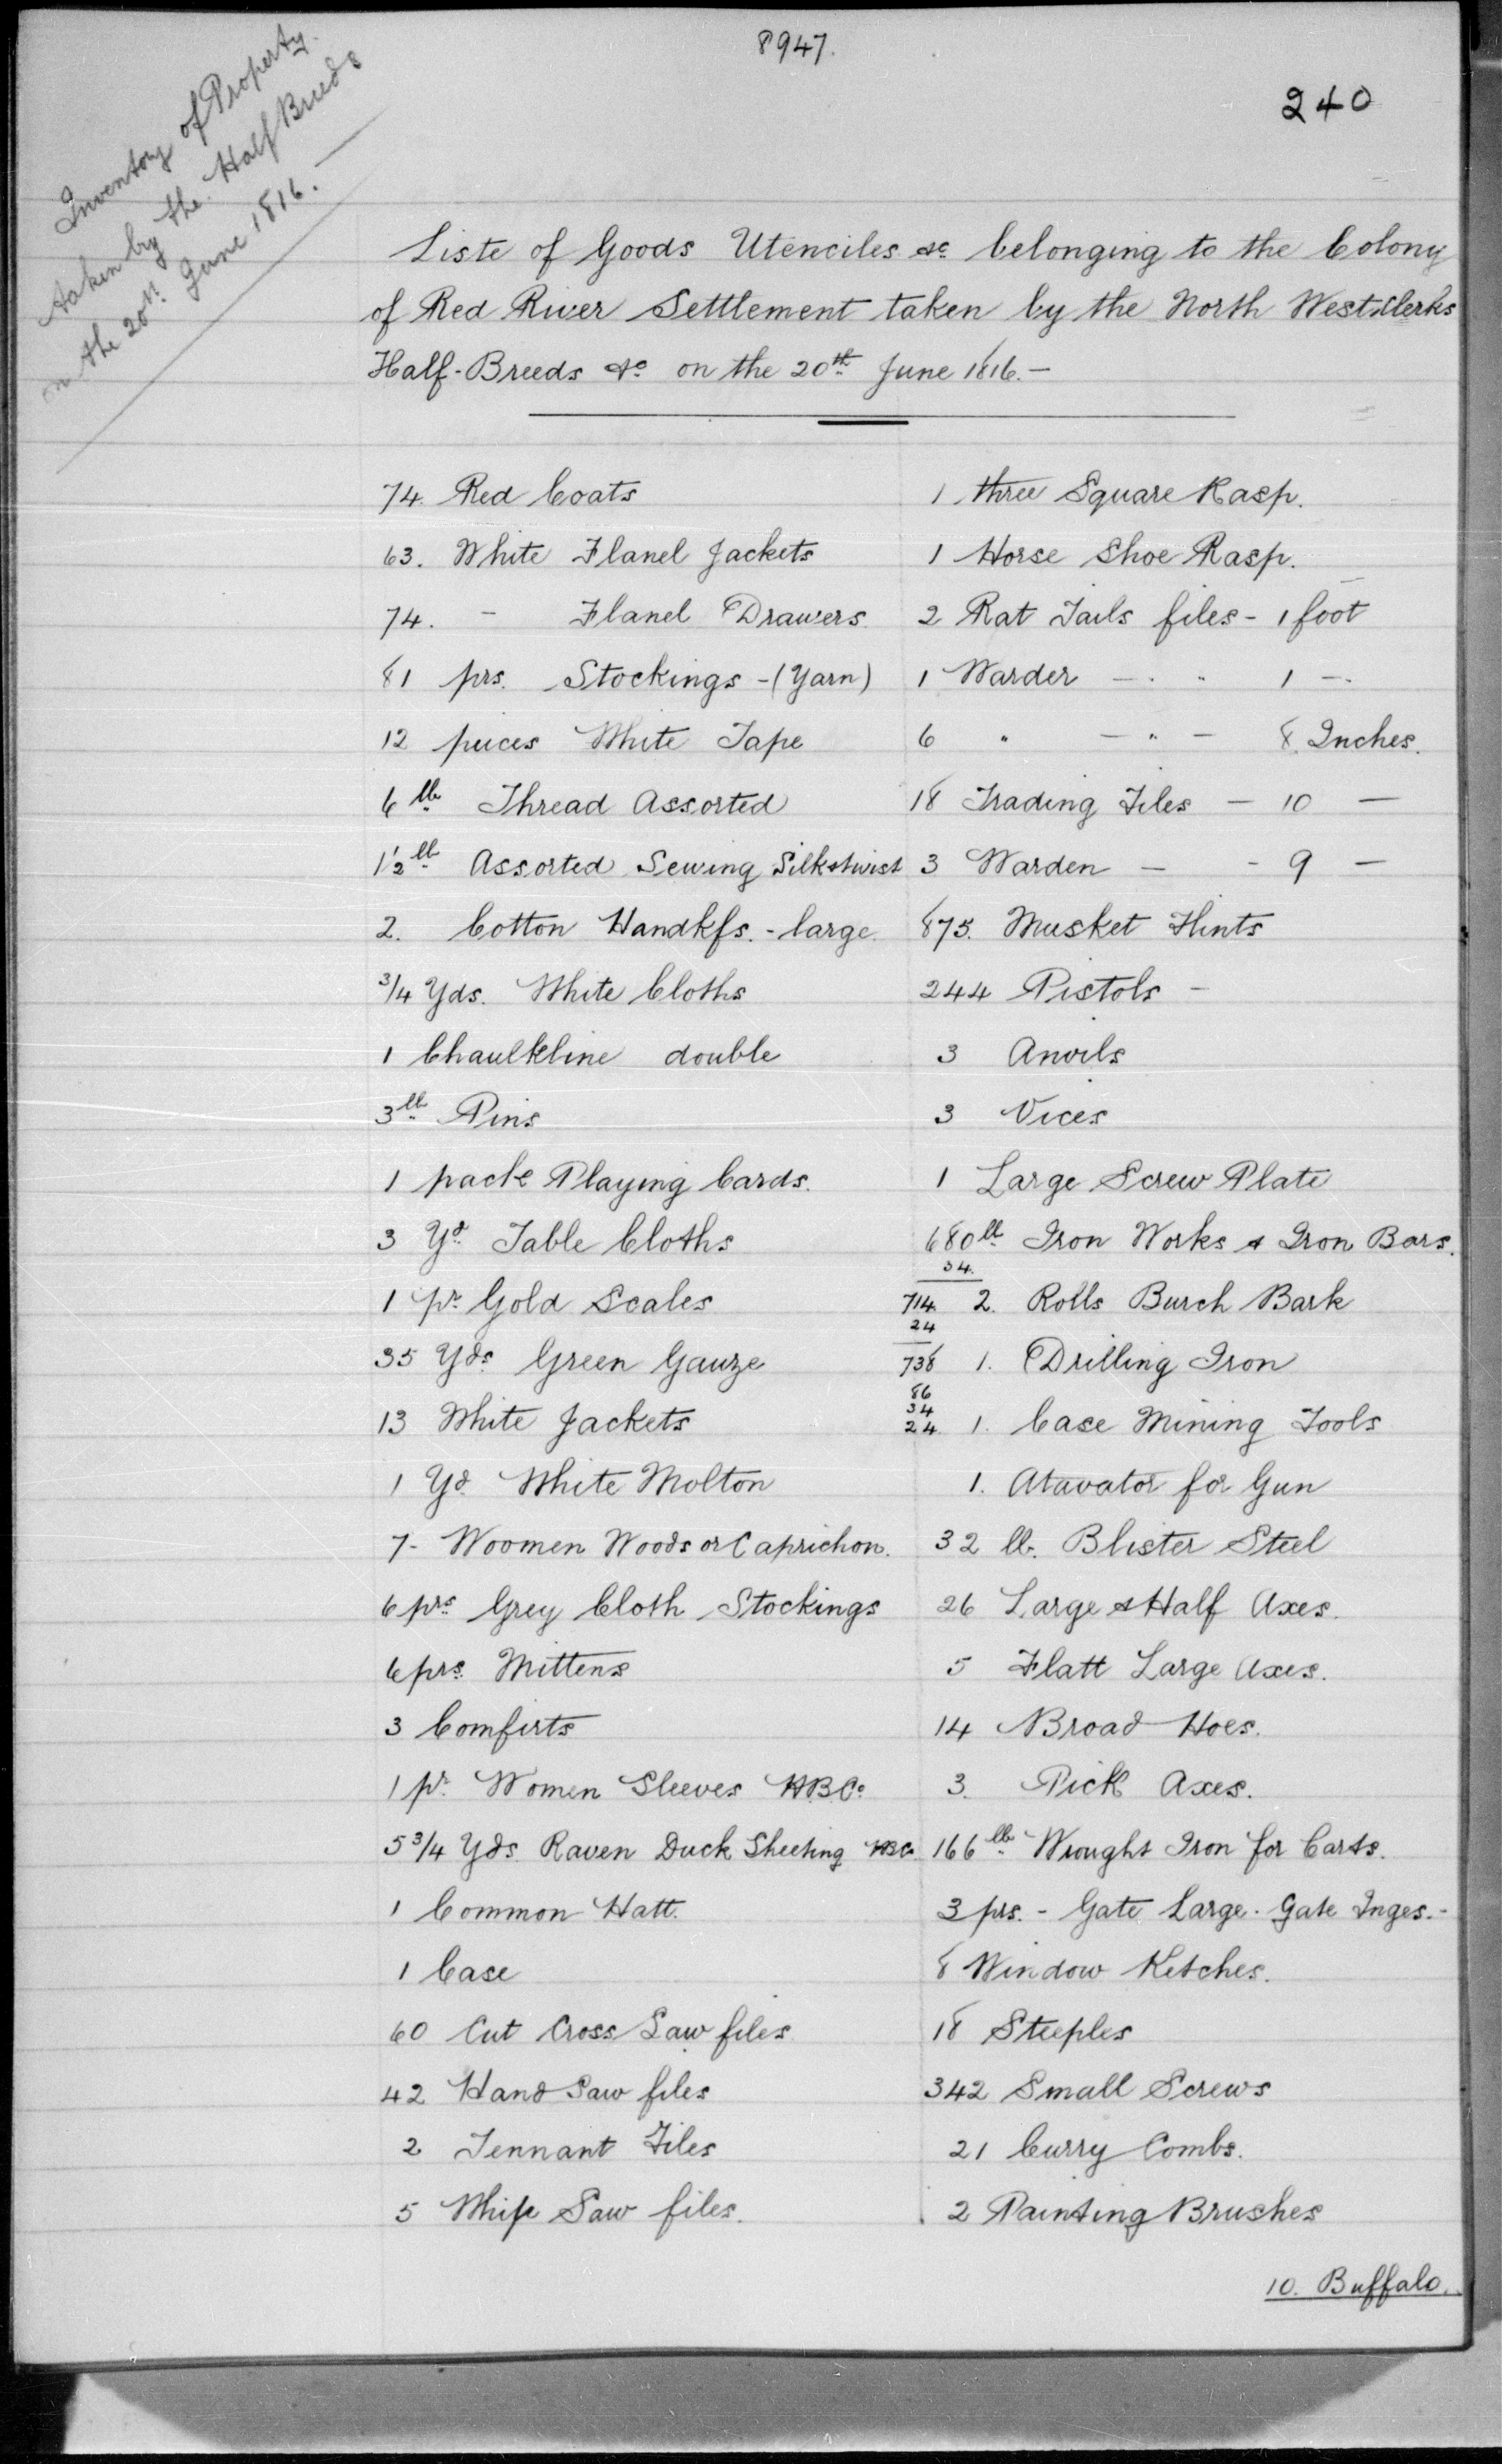 8947.
240
Inventory of Property
taken by the Half Breeds
on the 20th. June 1816.
Liste of Goods Utenciles &c belonging to the Colony
of Red River Settlement taken by the North West Clerks
Half-Breeds &c on the 20th June 1816.-
74. Red Coats
63. White Flanel Jackets
74. - Flanel Drawers
81 prs. Stockings - (Yarn)
12 peices White Tape
6 lb Thread Assorted
1½ lb Assorted Sewing Silk & twist
2. Cotton Handkfs. - large.
3/4 Yds. White Cloths
1 Chaulkline double
3 lb Pins
1 pack Playing Cards.
3 Yd Table Cloths
1 pr Gold Scales
35 Yds Green Gauze
13 White Jackets
1 Yd White Molton
7 - Woomen Woods or Caprichon.
6 prs Grey Cloth Stockings
6 prs. Mittens
3 Comfirts
1 pr. Women Sleeves H.B.Co.
5 3/4 Yds. Raven Duck Sheeting HBCo
1 Common Hatt.
1 Case
60 Cut Cross Saw files
42 Hand Saw files
2 Tennant Files
5 Whip Saw files.
1 three Square Rasp.
1 Horse Shoe Rasp.
2 Rat Tails files - 1 foot
1 Warder - . " 1 - .
6 " - " - 8 Inches.
18 Trading Files - 10 -
3 Warden - - 9 -
875. Musket Flints
244 Pistols -
3 Anvils
3 Vices
1 Large Screw Plate
680 lb Iron Works & Iron Bars.
34.
714. 2. Rolls Burch Bark
24
738 1. Drilling Iron
86
34
24. 1. Case Mining Tools
1. Atavator for Gun
32 lb. Blister Steel
26 Large & Half Axes.
5 Flatt Large Axes.
14 Broad Hoes.
3. Pick Axes.
166 lb. Wrought Iron for Carts.
3 prs. - Gate Large. Gate Inges. -
8 Window Ketches.
18 Steeples
342 Small Screws
21 Curry Combs.
2 Painting Brushes
10. Buffalo.